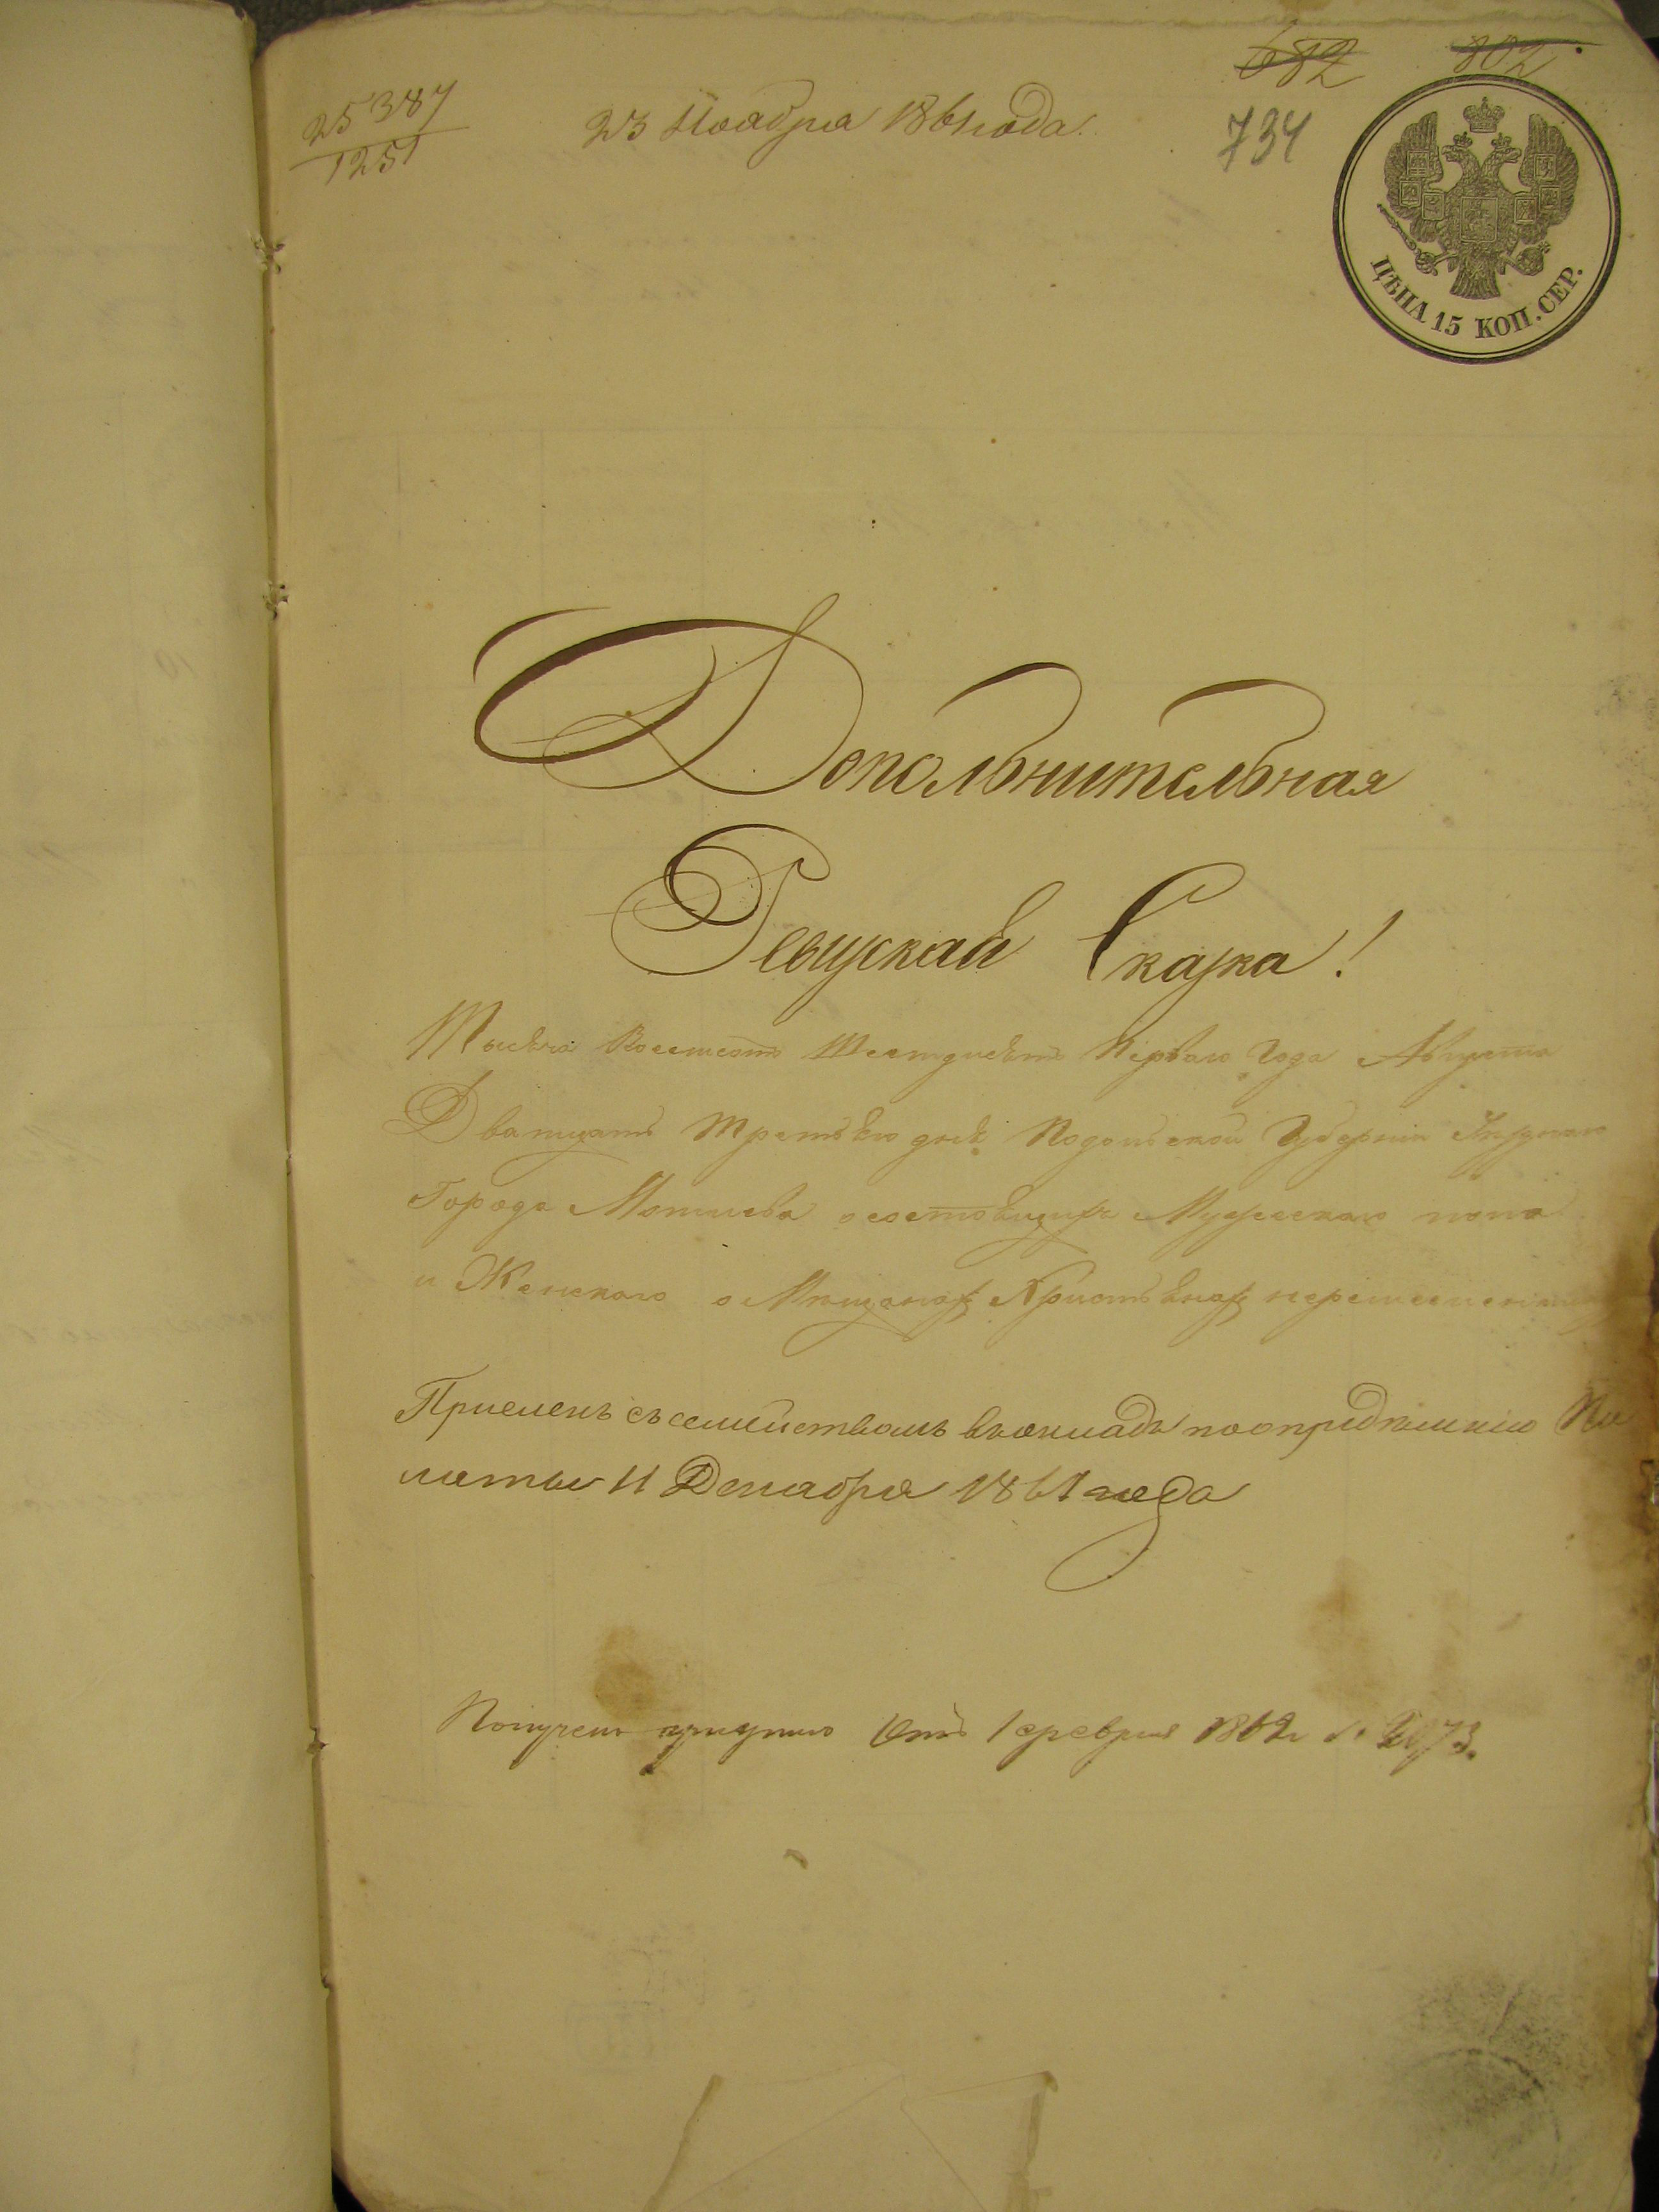 682 802
25387
1251
23 Ноября 1861 года.
734
ЦѢНА 15 КОП. СЕР.
Допольнительная
Ревизская Сказка!
Тысѣча Восемсотъ Шестдисѣтъ Перваго Года Августа
Дватцать Третьѣго днѣ Подольской Губернии
Города Могилева о состоѣщихъ Мужескаго пола
и Женскаго о Мещанахъ Христьѣнахъ
Причисленъ съ семействомъ въ окладъ по опредѣленію Па
латы 11 Декабря 1861 года
Получено Отъ 1 февраля 1862 г.